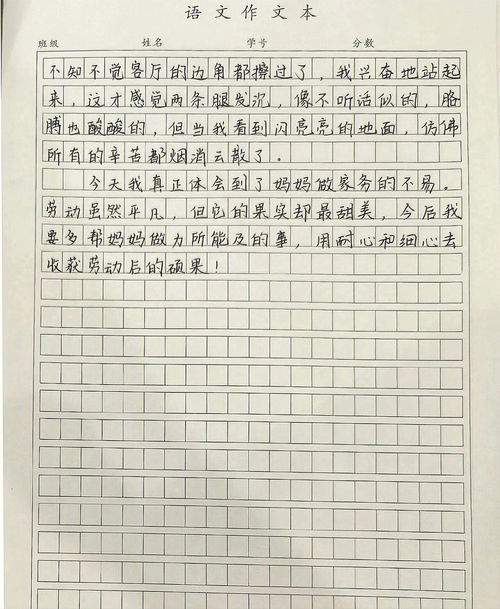 语文作文本
班级 姓名 学号 分数
不知不觉客厅的边角都擦过了，我兴奋地站起
来，这才感觉两条腿发沉，像不听话似的，胳
膊也酸酸的，但当我看到闪亮亮的地面，仿佛
所有的辛苦都烟消云散了。
今天我真正体会到了妈妈做家务的不易。
劳动虽然平凡，但它的果实却最甜美，今后我
要多帮妈妈做力所能及的事，用耐心和细心去
收获劳动后的硕果！